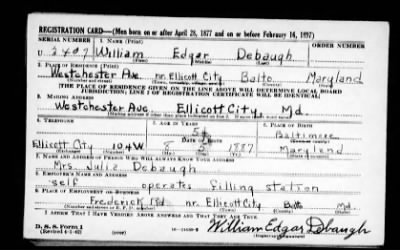 REGISTRATION CARD—(Men born on or after April 28, 1877 and on or before February 16, 1897)
SERIAL NUMBER 1. NAME (Print) ORDER NUMBER
U 2407 William Edgar Debaugh
(First) (Middle) (Last)
2. PLACE OF RESIDENCE (Print)
Westchester Ave. nr. Ellicott City Balto Maryland
[THE PLACE OF RESIDENCE GIVEN ON THE LINE ABOVE WILL DETERMINE LOCAL BOARD
JURISDICTION; LINE 2 OF REGISTRATION CERTIFICATE WILL BE IDENTICAL]
3. MAILING ADDRESS
Westchester Ave. Ellicott City Md.
[Mailing address if other than place indicated on line 2. If same insert word same]
4. TELEPHONE 5. AGE IN YEARS 6. PLACE OF BIRTH
54 Baltimore
DATE OF BIRTH
Ellicott City 104W 8 1887 Maryland
7. NAME AND ADDRESS OF PERSON WHO WILL ALWAYS KNOW YOUR ADDRESS
Mrs. Julia Debaugh
8. EMPLOYER'S NAME AND ADDRESS
self operates filling station
9. PLACE OF EMPLOYMENT OR BUSINESS
Frederick Rd nr. Ellicott City Balto Md
I AFFIRM THAT I HAVE VERIFIED ABOVE ANSWERS AND THAT THEY ARE TRUE.
D. S. S. Form 1
(Revised 4-1-42) William Edgar Debaugh